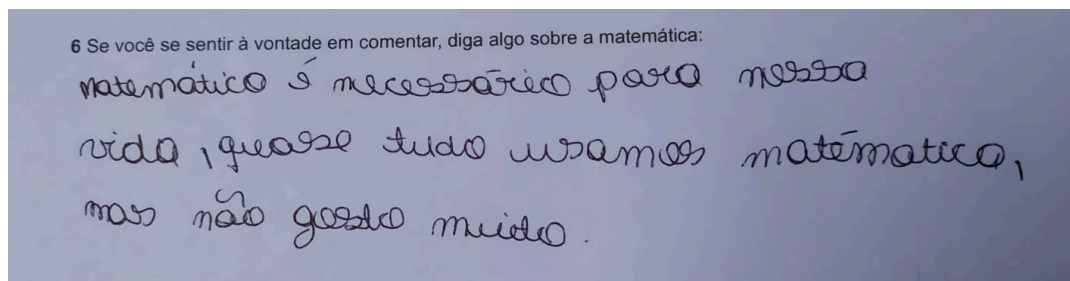 6 Se você se sentir à vontade em comentar, diga algo sobre a matemática:
matemática é necessário para nossa
vida, quase tudo usamos matématica,
mas não gosto muito.